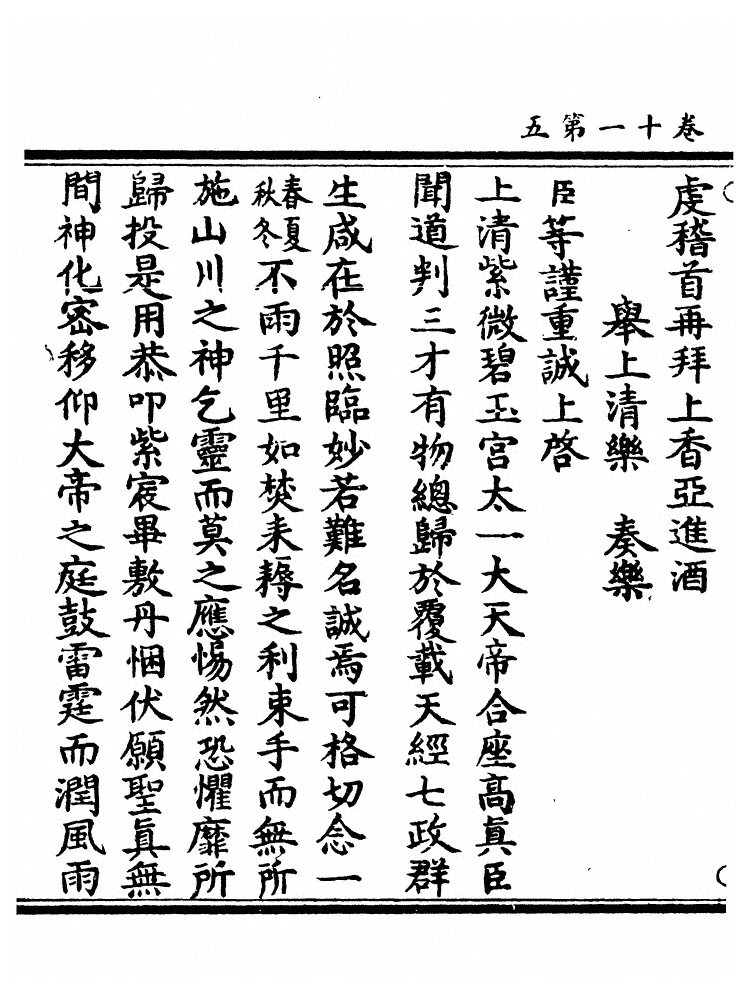 卷十一第五
虔稽首再拜上香亞進酒
舉上清樂　奏樂
臣等謹重誠上啓
上清紫微碧玉宮太一大天帝合座高眞臣
聞道判三才有物總歸於覆載天經七政群
生咸在於照臨妙若難名誠焉可格切念一
春夏秋冬不雨千里如焚耒耨之利束手而無所
施山川之神乞靈而莫之應惕然恐懼靡所
歸投是用恭叩紫宸畢敷丹悃伏願聖眞無
間神化密移仰大帝之庭鼓雷霆而潤風雨